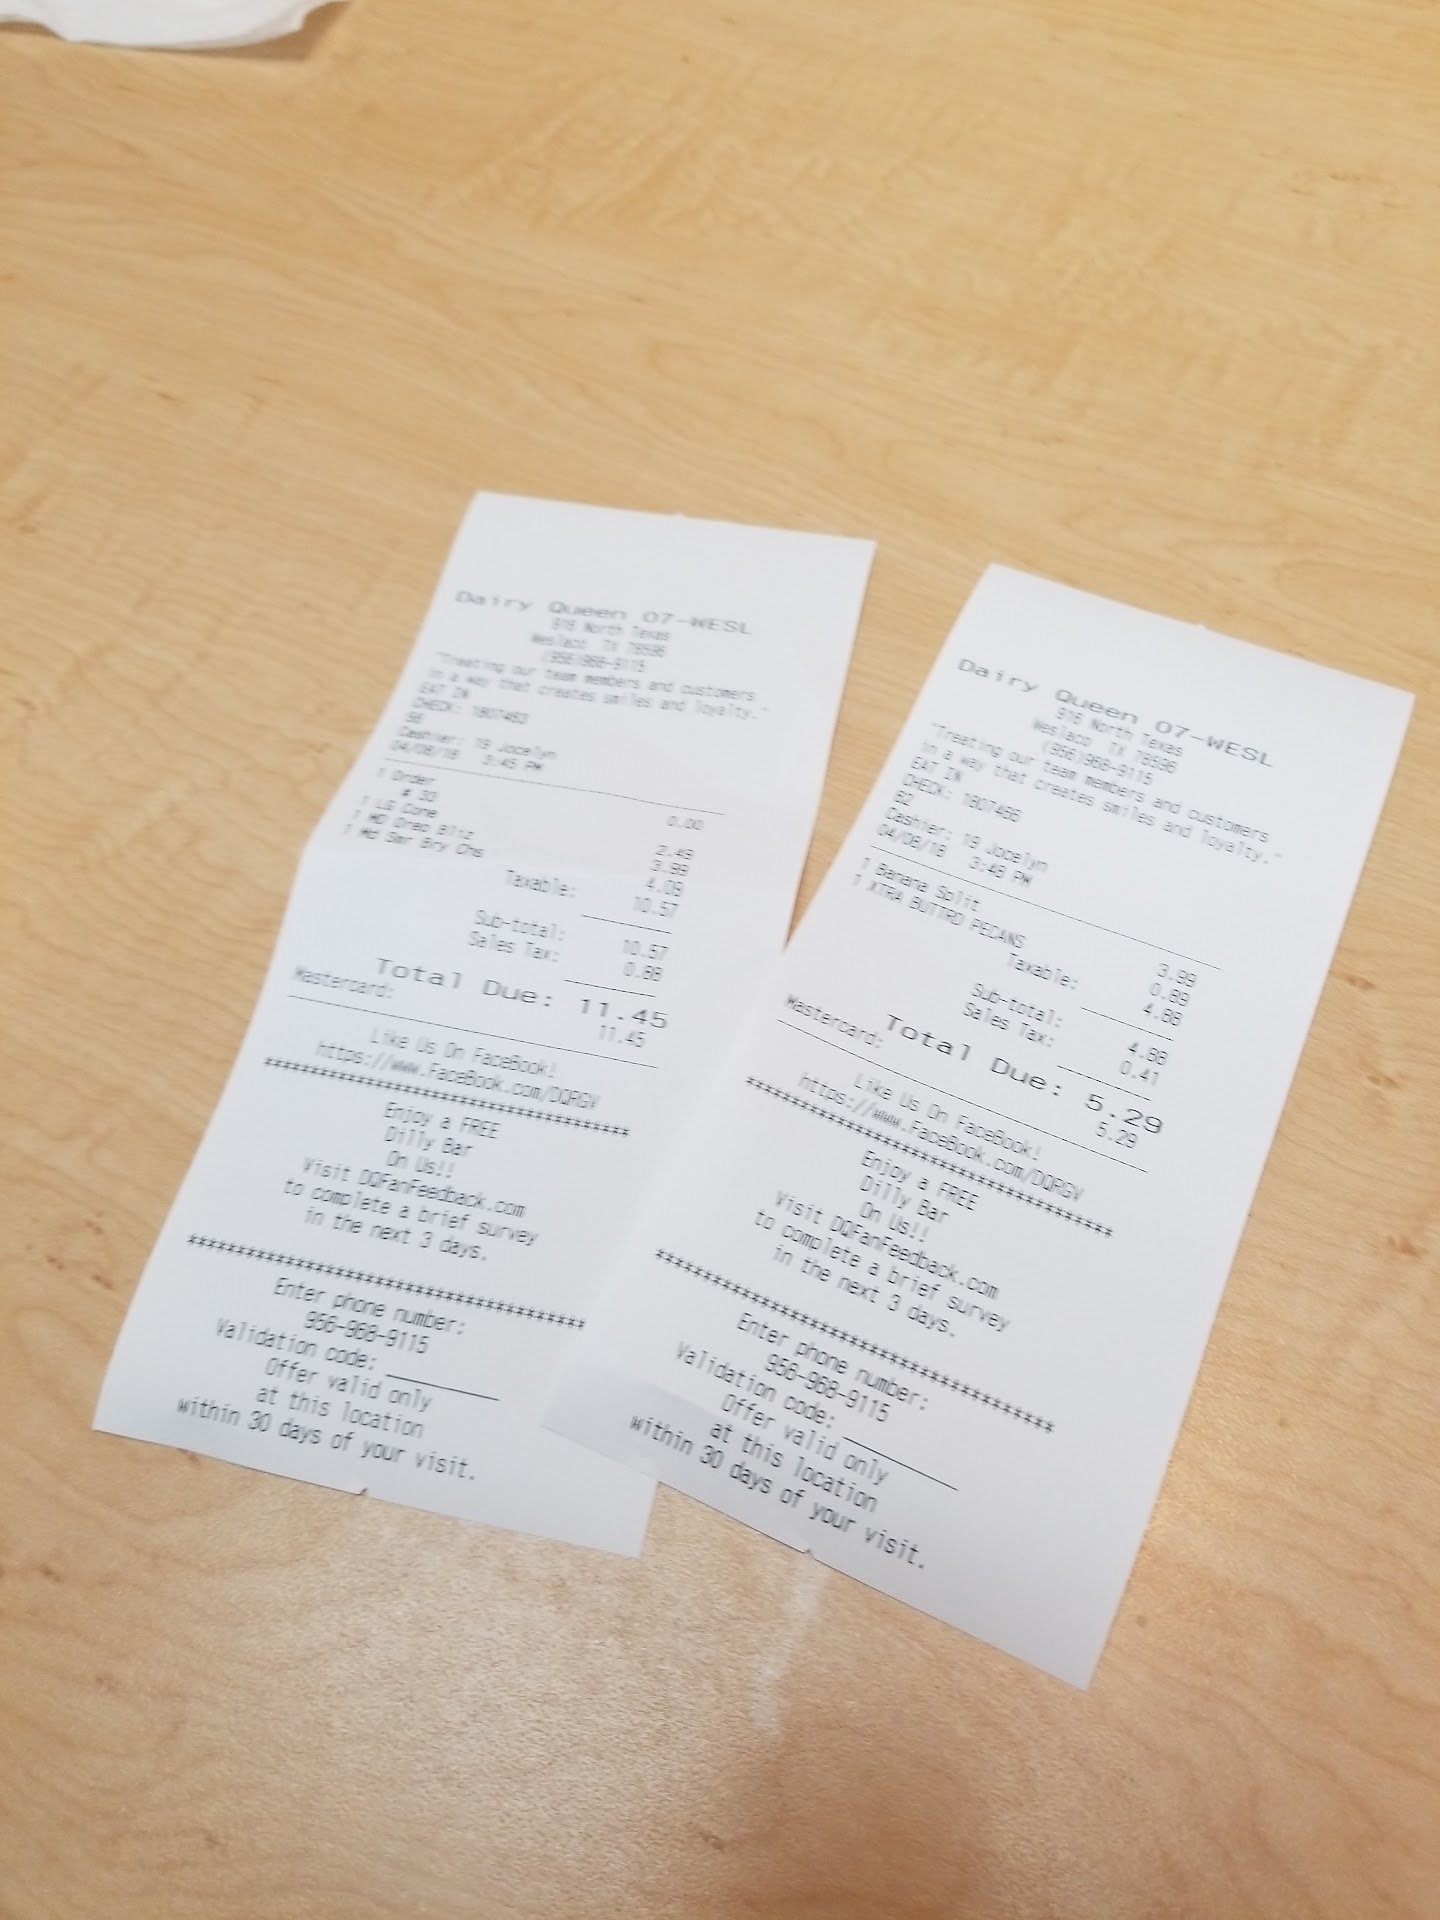 Dairy Queen 07-WESL
916 North Texas
Weslaco TX 78596
(956)968-9115
"Treating our team members and customers
in a way that creates smiles and loyalty."
EAT IN
CHECK: 1807463
58
Cashier: 19 Jocelyn
04/08/18 3:45 PM
1 Order 0.00
# 33
1 LG Cone 2.49
1 MD Oreo Bliz 3.99
1 Md Smr Bry Chs 4.09
Taxable: 10.57
Sub-total: 10.57
Sales Tax: 0.88
Total Due: 11.45
Mastercard: 11.45
Like Us On FaceBook!
https://www.FaceBook.com/DQRGV
****************************************
Enjoy a FREE
Dilly Bar
On Us!!
Visit DQFanFeedback.com
to complete a brief survey
in the next 3 days.
****************************************
Enter phone number:
956-968-9115
Validation code: __________
Offer valid only
at this location
within 30 days of your visit.
Dairy Queen 07-WESL
916 North Texas
Weslaco TX 78596
(956)968-9115
"Treating our team members and customers
in a way that creates smiles and loyalty."
EAT IN
CHECK: 1807466
62
Cashier: 19 Jocelyn
04/08/18 3:48 PM
1 Banana Split 3.99
1 XTRA BUTTRD PECANS 0.89
Taxable: 4.88
Sub-total: 4.88
Sales Tax: 0.41
Total Due: 5.29
Mastercard: 5.29
Like Us On FaceBook!
https://www.FaceBook.com/DQRGV
****************************************
Enjoy a FREE
Dilly Bar
On Us!!
Visit DQFanFeedback.com
to complete a brief survey
in the next 3 days.
****************************************
Enter phone number:
956-968-9115
Validation code: __________
Offer valid only
at this location
within 30 days of your visit.